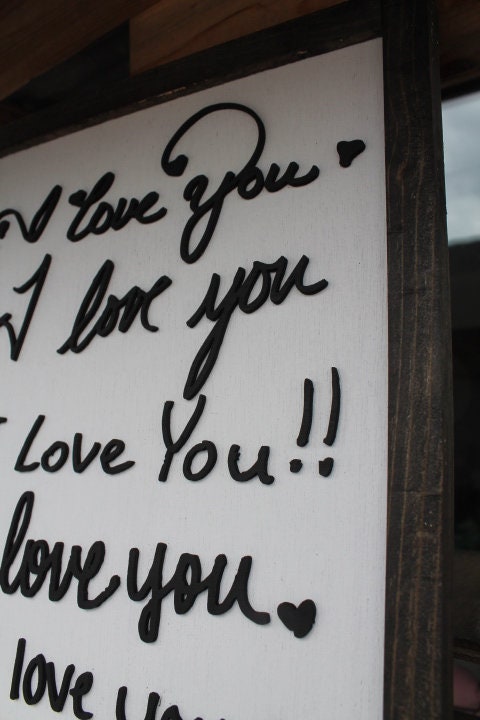 I love you
I love you
I Love You!!
love you.
love you